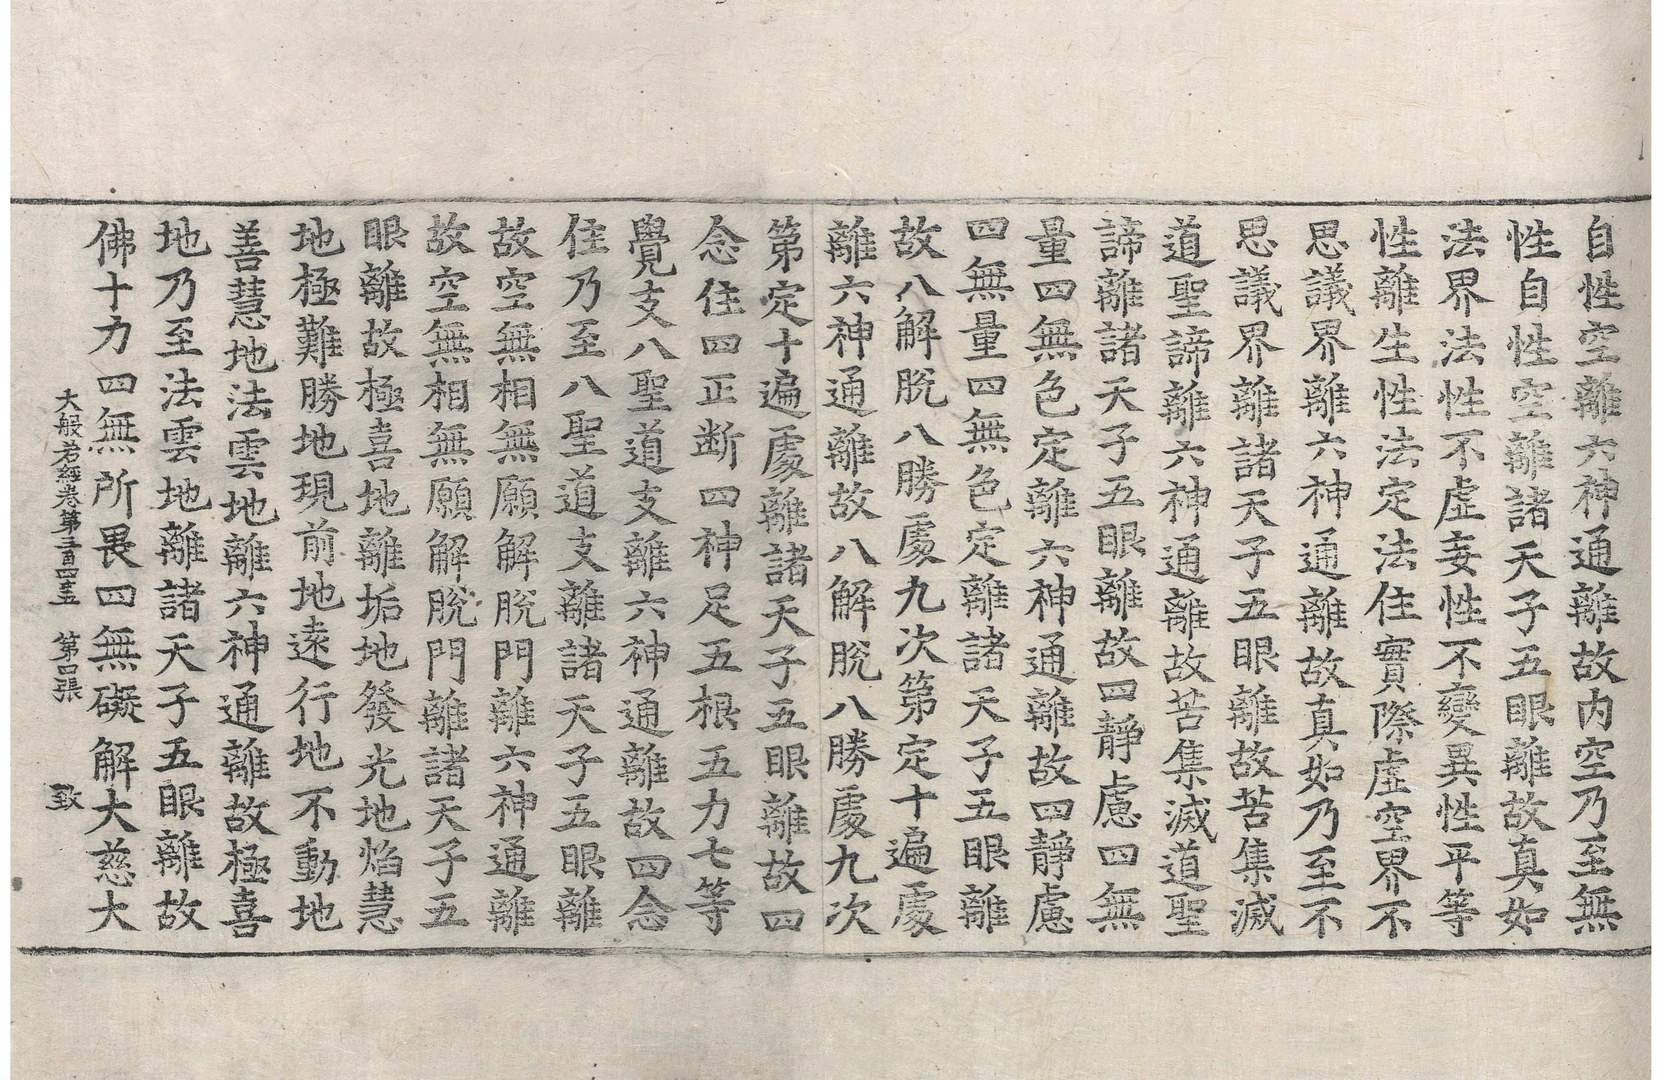 自性空離六神通離故内空乃至無
性自性空離諸天子五眼離故真如
法界法性不虛妄性不變異性平等
性離生性法定法住實際虛空界不
思議界離六神通離故真如乃至不
思議界離諸天子五眼離故苦集滅
道聖諦離六神通離故苦集滅道聖
諦離諸天子五眼離故四靜慮四無
量四無色定離六神通離故四靜慮
四無量四無色定離諸天子五眼離
故八解脫八勝處九次第定十遍處
離六神通離故八解脫八勝處九次
第定十遍處離諸天子五眼離故四
念住四正断四神足五根五力七等
覺支八聖道支離六神通離故四念
住乃至八聖道支離諸天子五眼離
故空無相無願解脫門離六神通離
故空無相無願解脫門離諸天子五
眼離故極喜地離垢地發光地焰慧
地極難勝地現前地遠行地不動地
善慧地法雲地離六神通離故極喜
地乃至法雲地離諸天子五眼離故
佛十力四無所畏四無礙解大慈大
大般若經卷第三百四十五 第四張 致